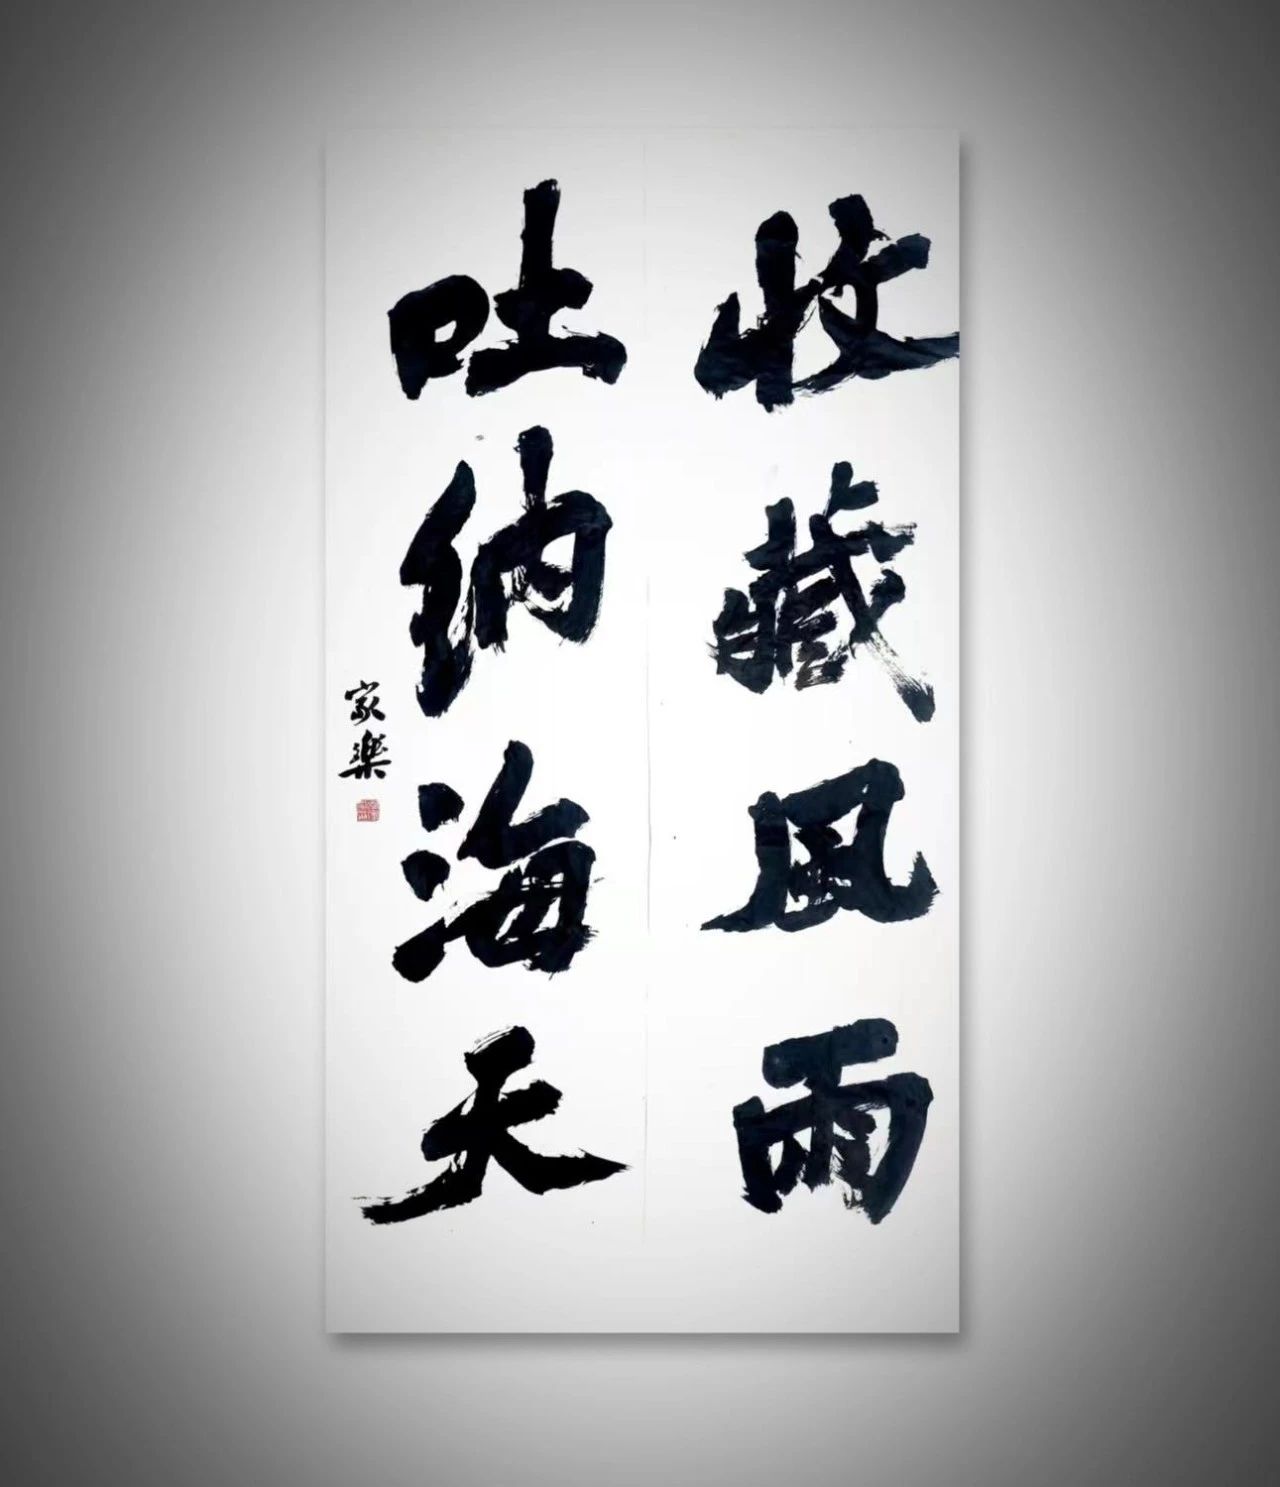 收藏風雨
吐納海天
家樂